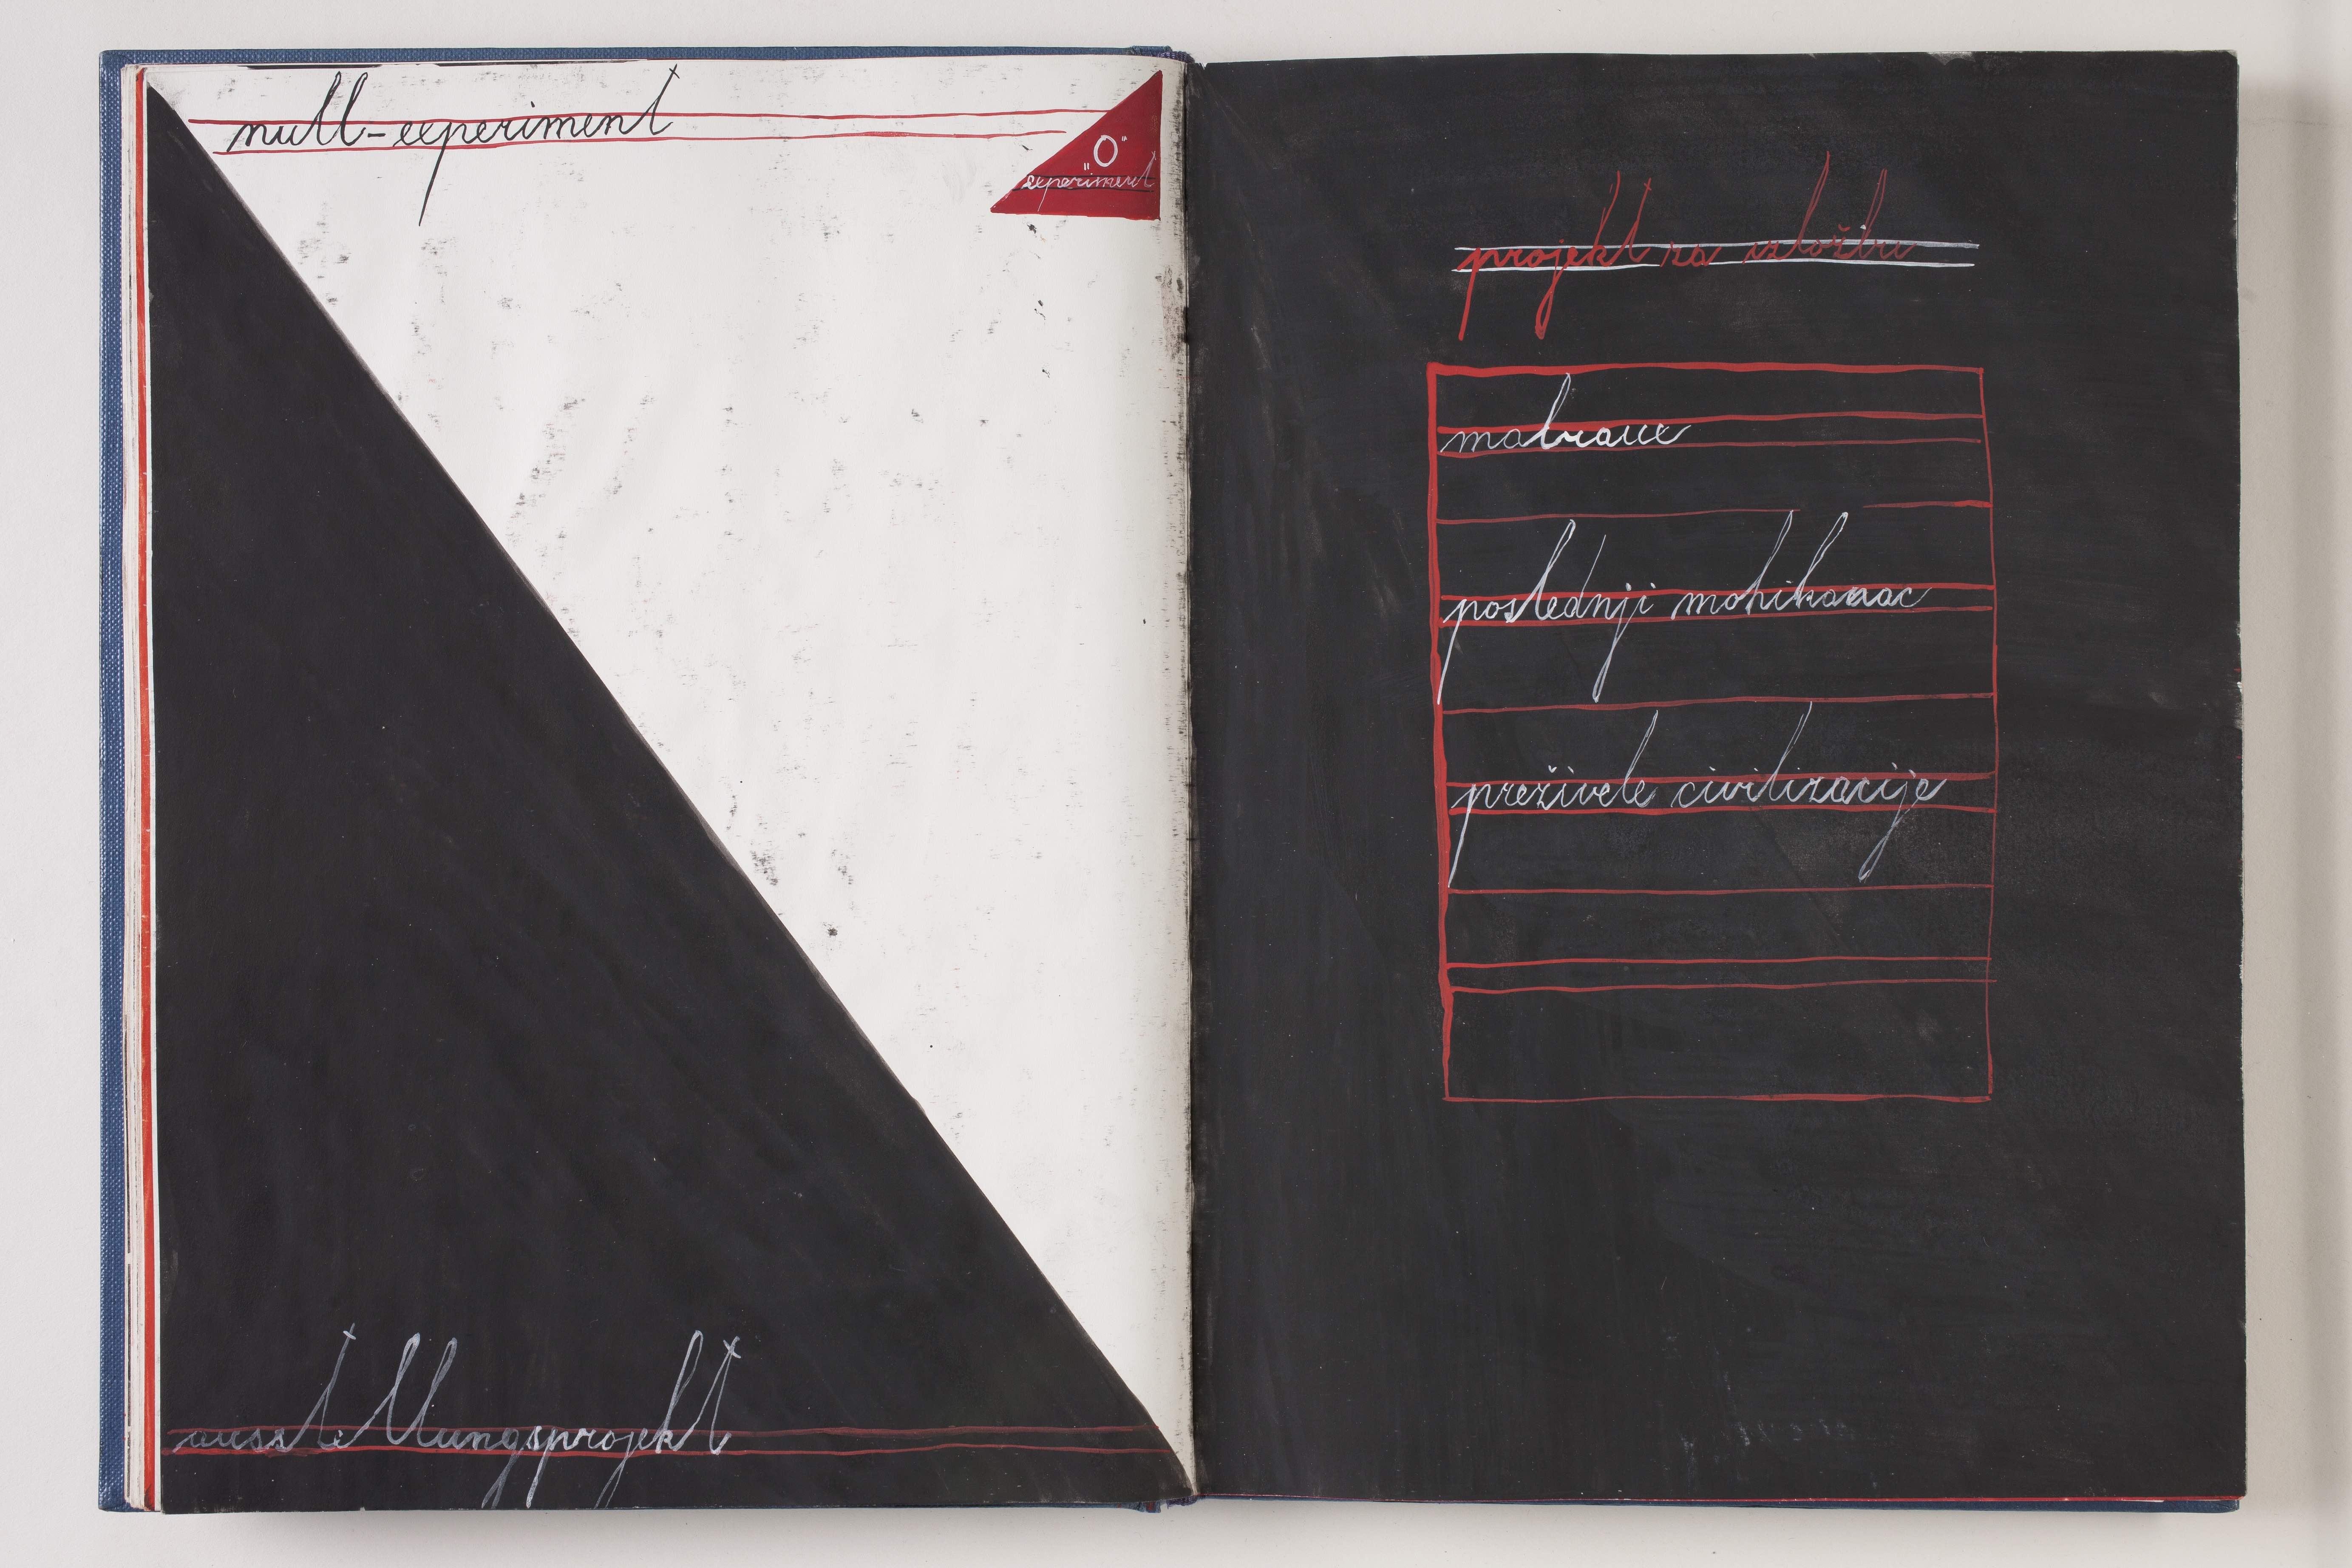 null-experiment
"O"
experiment
ausstellungsprojekt
projekt za izložbu
malraux
poslednji mohikanac
preživele civilizacije